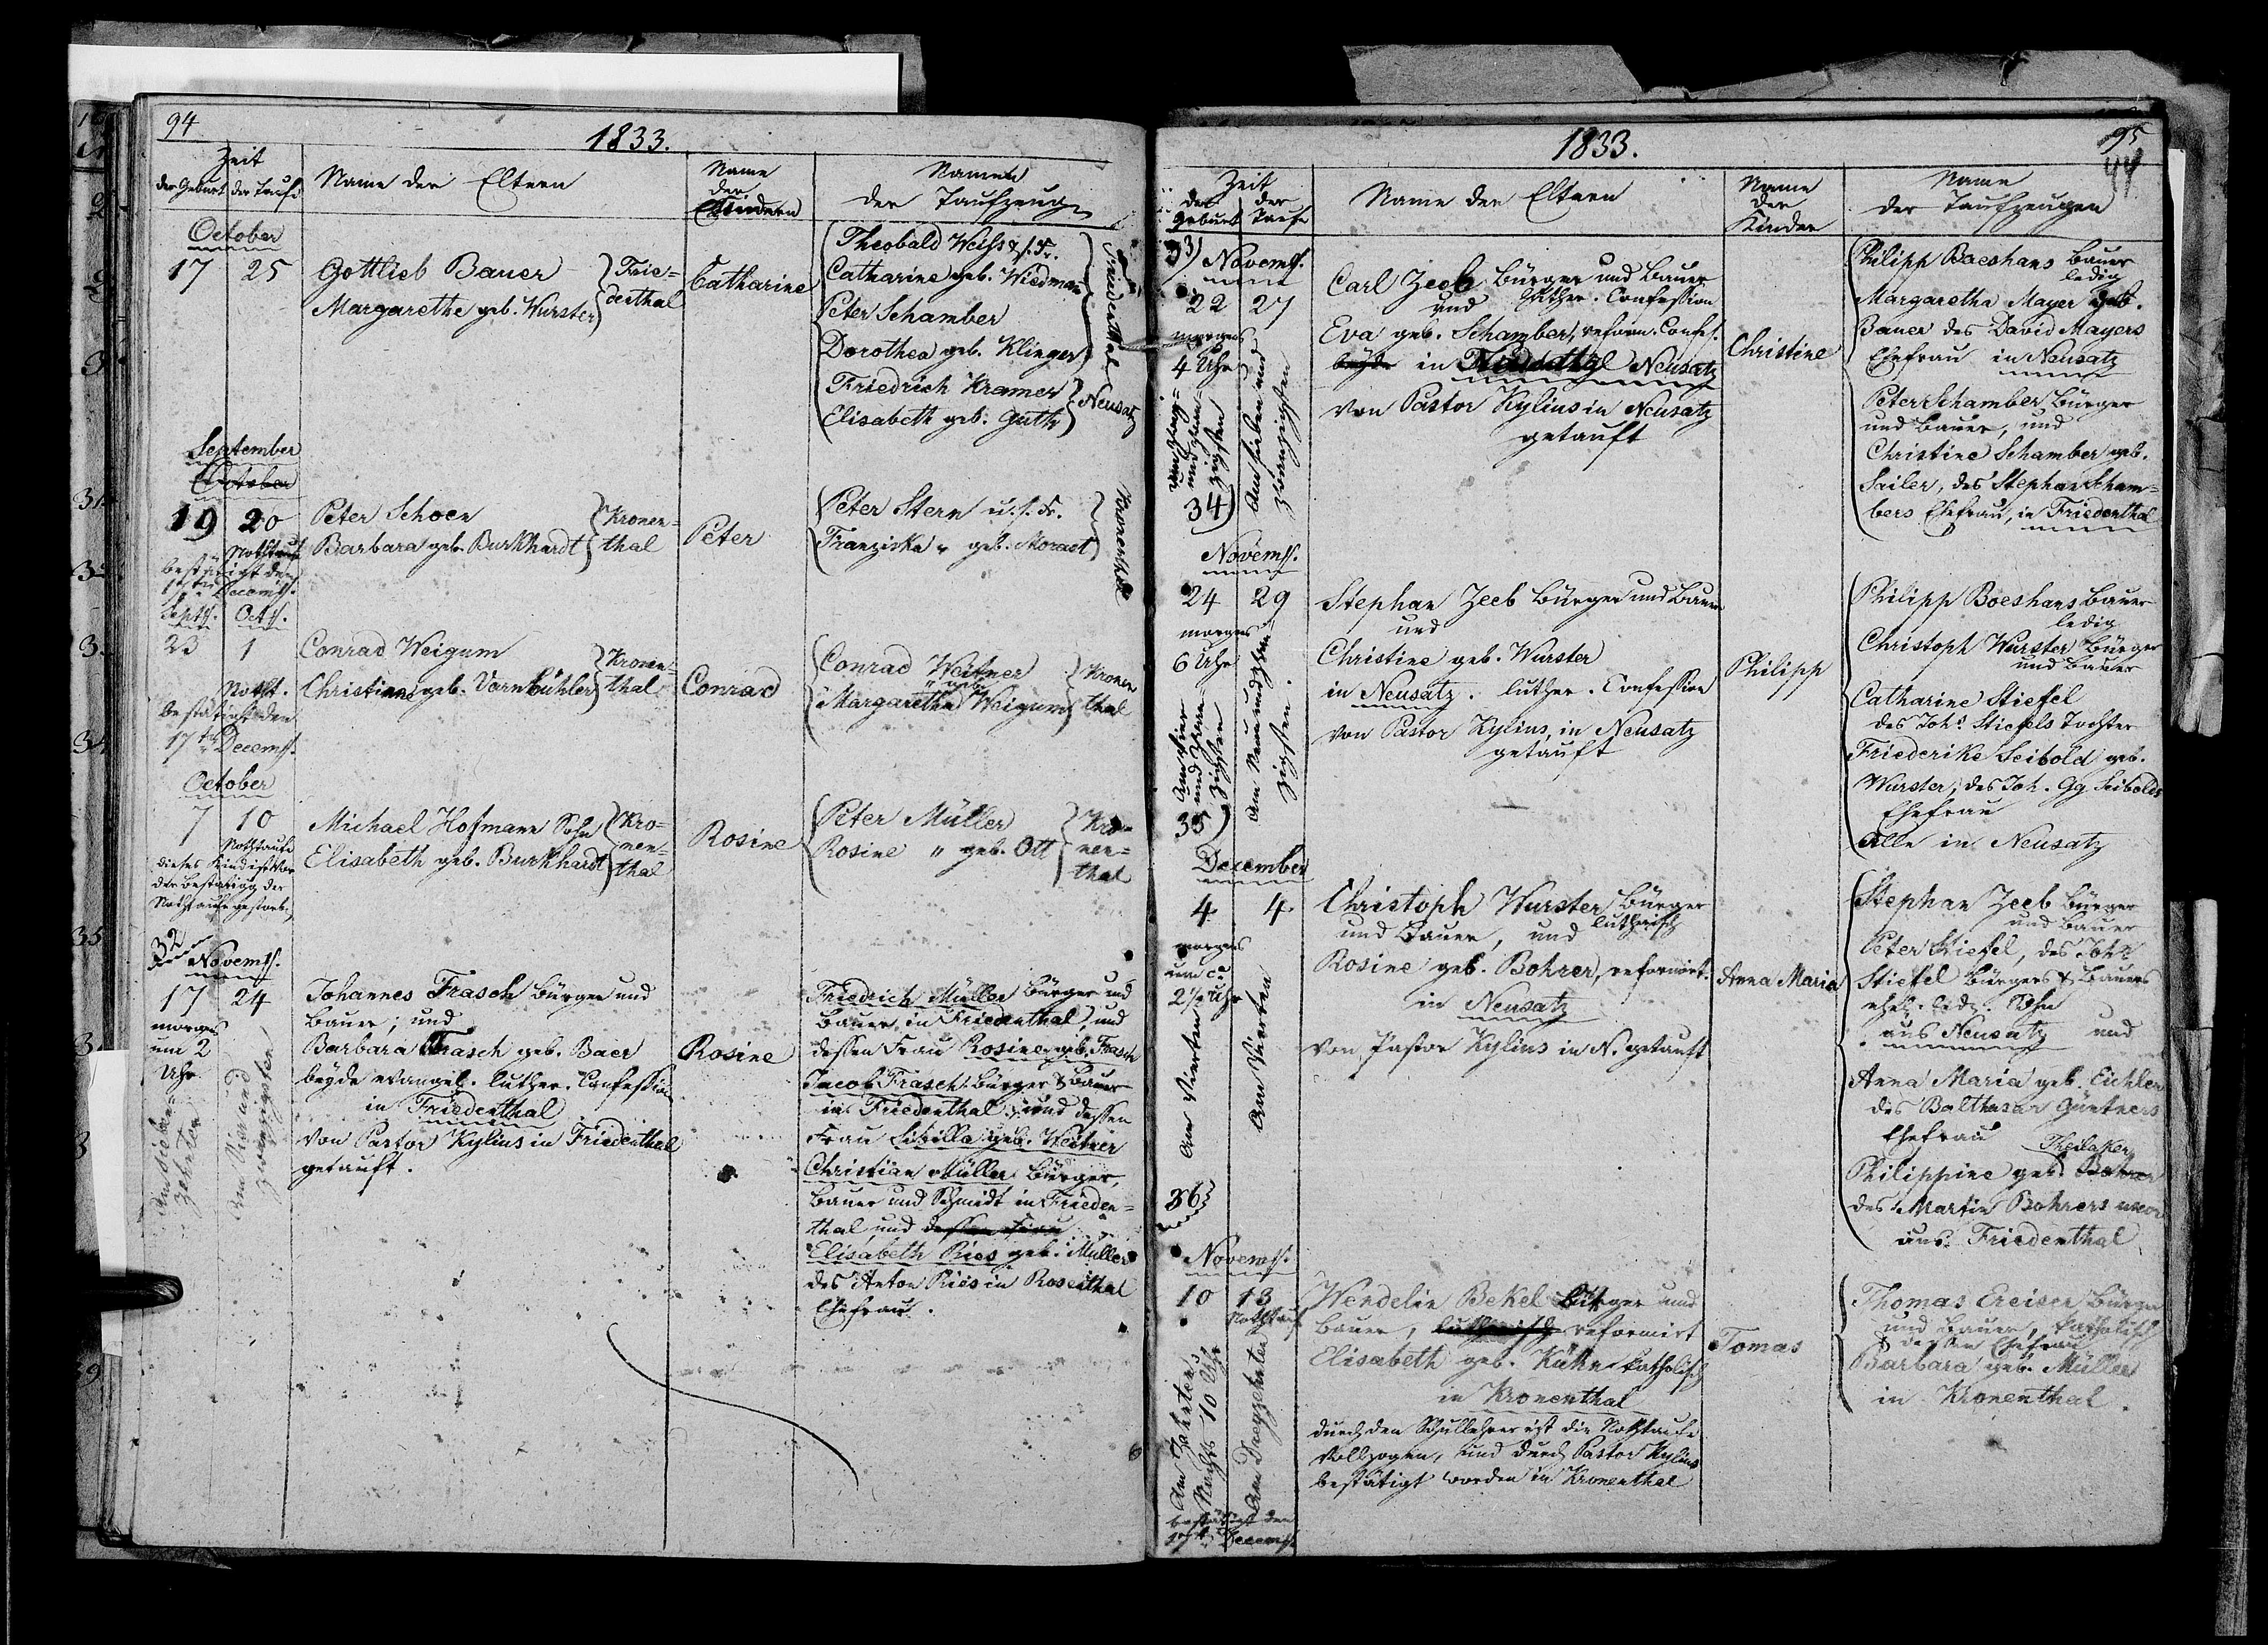 94
1833.
Zeit
der Geburt der Taufe
Name der Eltern
Name
der
Kindern
Namen
der Taufzeugen
October
17 25
Gottlieb Bauer
Margarethe geb. Wurster
Frie=
denthal
Catharine
Theobald Weiss & s. Fr.
Catharine geb. Wiedman
Peter Schamber
Dorothea geb. Klinger
Friedenthal
Friedrich Kramer
Elisabeth geb. Guth
Neusatz
September
October
19 20
Nothtauf
bestätigt den
17ten Decembr.
Peter Schoen
Barbara geb. Burkhardt
Kronen=
thal
Peter
Peter Stern u. s. Fr.
Franziska " geb. Moract
Kronenthal
Septbr. Octbr.
23 1
Notht.
bestätigt den
17ten Decembr.
Conrad Weigum
Christiane geb. Varnbühler
Kronen=
thal
Conrad
Conrad Weitner
Margaretha geb. Weigum
Kronen
thal
October
7 10
Nothtaufe
dieses Kind ist vor
der Bestätigg der
Nothtaufe gestorb.
Michael Hofmann Sohn
Elisabeth geb. Burkhardt
Kro=
nen=
thal
Rosine
Peter Müller
Rosine " geb. Ott
Kro=
nen=
thal
32
Novembr.
17 24
morgens
um 2
Uhr
Am Sieben=
zehnten
Am Vier und
zwanzigsten
Johannes Frasch Bürger und
Bauer; und
Barbara Frasch geb. Baer
beyde evangel. luther. Confession
in Friedenthal
Von Pastor Kylius in Friedenthal
getauft.
Rosine
Friedrich Müller Bürger und
Bauer in Friedenthal, und
dessen Frau Rosine geb. Frasch
Jacob Frasch Bürger & Bauer
in Friedenthal und dessen
Frau Sibilla geb. Weitner
Christian Müller Bürger,
Bauer und Schmidt in Frieden=
thal, und dessen Frau
Elisabeth Ries geb. Müller
des Anton Ries in Rosenthal
Ehefrau.
95
94
1833.
Zeit
der der
Geburt Taufe
Name der Eltern
Name
der
Kinder
Name
der Taufzeugen
33) Novembr.
22 27
morgens
4 Uhr
Am zwey=
und zwan=
zigsten
Am sieben und
zwanzigsten
Carl Zeeb Bürger und Bauer
und luther. Confession
Eva geb. Schamber, reform. Confes.
beyde in Neusatz
Von Pastor Kylius in Neusatz
getauft
Christine
Philipp Boeshans Bauer
ledig
Margaretha Mayer geb.
Bauer des David Mayers
Ehefrau in Neusatz
Peter Schamber Bürger
und Bauer, und
Christine Schamber geb.
Sailer, des Stephan Scham=
bers Ehefrau, in Friedenthal
34)
Novembr.
24 29
morgens
6 Uhr
Am vier
und zwan=
zigsten
Am Neun und zwan=
zigsten.
Stephan Zeeb Bürger und Bauer
und
Christine geb. Wurster
in Neusatz. luther. Confession
Von Pastor Kylius, in Neusatz
getauft
Philipp
Philipp Boeshans Bauer
ledig
Christoph Wurster Bürger
und Bauer
Catharine Stiefel
des Johs. Stiefels Tochter
Friederike Seibold geb.
Wurster, des Joh. Gg Seibolds
Ehefrau
Alle in Neusatz
35)
December
4 4.
morgens
um ca
2 1/2 Uhr
Am Vierten
Am Vierten
Christoph Wurster Bürger
und Bauer, und lutherisch
Rosine geb. Bohrer, reformirt.
in Neusatz
Von Pastor Kylius in N. getauft
Anna Maria
Stephan Zeeb Bürger
und Bauer
Peter Stiefel, des Johs
Stiefel Bürgers & Bauers
ehel. led. Sohn
aus Neusatz und
Anna Maria geb. Eichler
des Balthasar Güntners
Ehefrau
Theilaker
Philippine geb. Bohrer
des Martin Bohrers uxor
aus Friedenthal
36)
Novembr.
10 13
Nothtauf
Am Zehnten
Nachts 10 Uhr
Am Dreyzehnten
bestätigt den
17ten Decembr
Wendelin Bekel Bürger und
Bauer, lutherisch reformirt
Elisabeth geb. Kühn katholisch
in Kronenthal
durch den Schullehrer ist die Nothtaufe
vollzogen, und durch Pastor Kylius
bestätigt worden in Kronenthal
Tomas
Thomas Ereiser Bürger
und Bauer, katholisch
& dessen Ehefrau
Barbara geb. Müller
in Kronenthal.